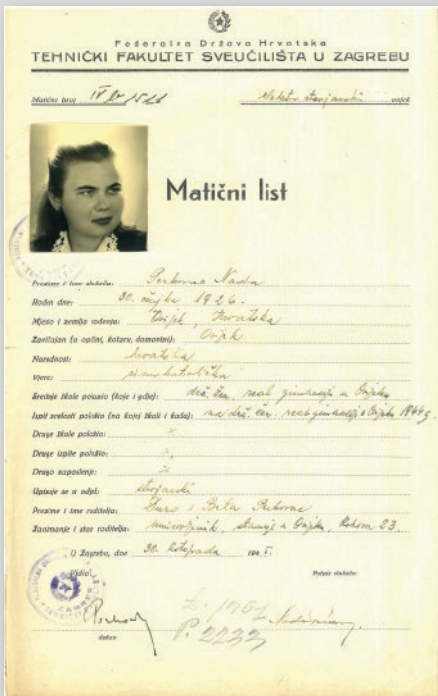 Federalna Država Hrvatska
TEHNIČKI FAKULTET SVEUČILIŠTA U ZAGREBU
Matični broj odsjek
Matični list
Prezime i ime slušača: Perkovac Nada
Rođen dne: 30. ožujka 1926.
Mjesto i zemlja rođenja: Osijek, Hrvatska
Zavičajan (u općini, kotaru, domovini): Osijek
Narodnost: hrvatska
Vjera: rimokatolička
Srednje škole polazio (koje i gdje): drž. žen. real. gimnaziju u Osijeku
Ispit zrelosti položio (na kojoj školi i kada): na drž. žen. real. gimnaziji u Osijeku 1944 g.
Druge škole polazio:
Druge ispite položio:
Drugo zaposlenje:
Upisuje se u odjel: strojarski
Prezime i ime roditelja: Đuro i
Zanimanje i stan roditelja: umirovljenik, stanuje u Osijeku, 23.
U Zagrebu, dne 30. listopada 194
Vidio: Potpis slušača:
P. 2232
dekan